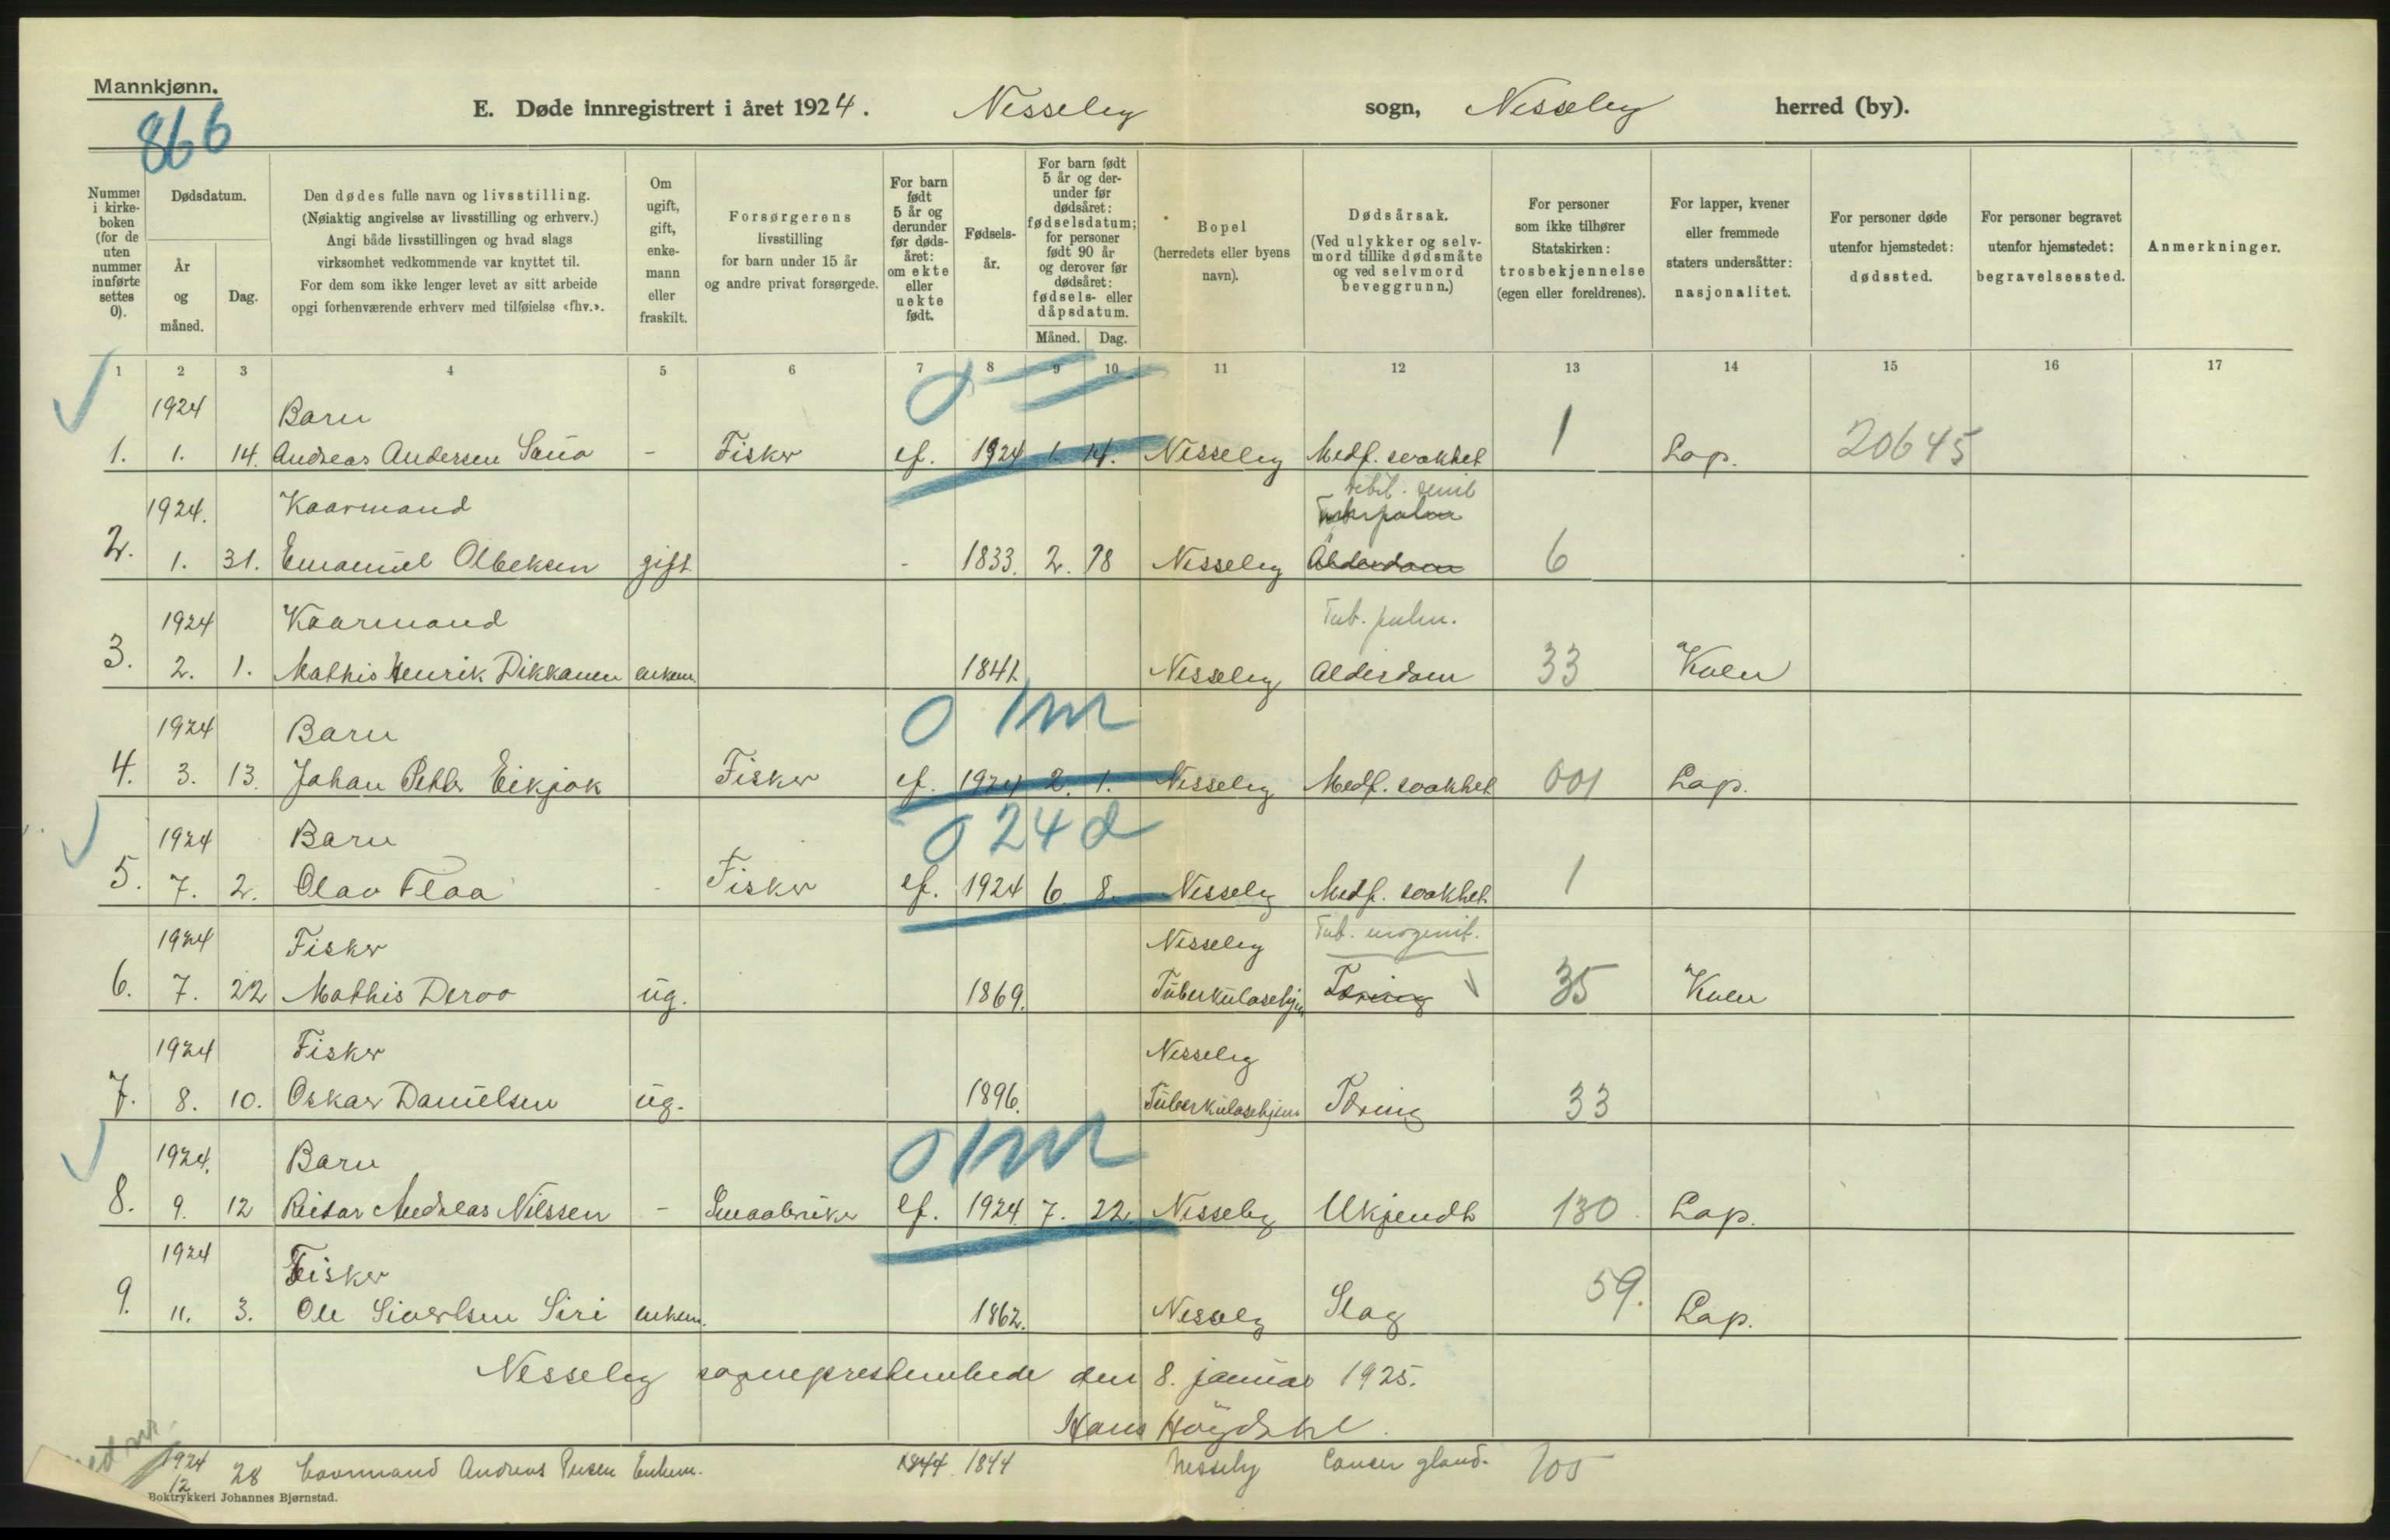 Mannkjønn.
866
E. Døde innregistrert i året 1924. Nesseby sogn, Nesseby herred (by).
Nummer i kirkeboken (for de uten nummer innførte settes 0).
Dødsdatum.
År og måned.
Dag.
Den dødes fulle navn og livsstilling.
(Nøiaktig angivelse av livsstilling og erhverv.)
Angi både livsstillingen og hvad slags
virksomhet vedkommende var knyttet til.
For dem som ikke lenger levet av sitt arbeide
opgi forhenværende erhverv med tilføielse «fhv.».
Om ugift, gift, enkemann eller fraskilt.
Forsørgerens
livsstilling
for barn under 15 år
og andre privat forsørgede.
For barn født 5 år og derunder før dødsåret: om ekte eller uekte født.
Fødselsår.
For barn født 5 år og derunder før dødsåret: fødselsdatum; for personer født 90 år og derover før dødsåret: fødsels- eller dåpsdatum.
Måned. Dag.
Bopel
(herredets eller byens
navn).
Dødsårsak.
(Ved ulykker og selvmord tillike dødsmåte og ved selvmord beveggrunn.)
For personer
som ikke tilhører
Statskirken:
trosbekjennelse
(egen eller foreldrenes).
For lapper, kvener
eller fremmede
staters undersåtter:
nasjonalitet.
For personer døde
utenfor hjemstedet:
dødssted.
For personer begravet
utenfor hjemstedet:
begravelsessted.
Anmerkninger.
1 2 3 4 5 6 7 8 9 10 11 12 13 14 15 16 17
1924 Barn 0
1. 1. 14. Andreas Andersen - Fisker ef. 1924 1. 14. Nesseby Medf. svakhet 1 Lap. 20645
debil. senil
1924. Kaarmand
2. 1. 31. Emanuel Olbeksen gift - 1833. 2. 28 Nesseby Alderdom 6
1924 Kaarmand Tub. pulm.
3. 2. 1. Mathis Henrik Dikkanen enkem. 1841. Nesseby Alderdom 33 Kven
1924 Barn 0 1m
4. 3. 13. Johan Petter Eikjok Fisker ef. 1924 2. 1. Nesseby Medf. svakhet 001 Lap.
1924 Barn 0 24 d
5. 7. 2. Olav Flaa - Fisker ef. 1924 6. 8. Nesseby Medf. svakhet 1
1924 Fisker Nesseby Tub. urogenit.
6. 7. 22 Mathis ug. 1869. Tuberkulosehjem Tæring 35 Kven
1924 Fisker Nesseby
7. 8. 10. Oskar Danielsen ug. 1896. Tuberkulosehjem Tæring 33
1924. Barn 0 1m
8. 9. 12 Reidar Andreas Nilssen - Smaabruker ef. 1924. 7. 22. Nesseby Ukjendt 130 Lap.
1924 Fisker
9. 11. 3. Ole Sivertsen Siri enkem. 1862. Nesseby Slag 59. Lap.
Nesseby sogneprestembede den 8. januar 1925.
Hans Høydahl.
1924
12 28 Andreas Enkem. 1844 1844 Nesseby Cancer gland. 105
Boktrykkeri Johannes Bjørnstad.